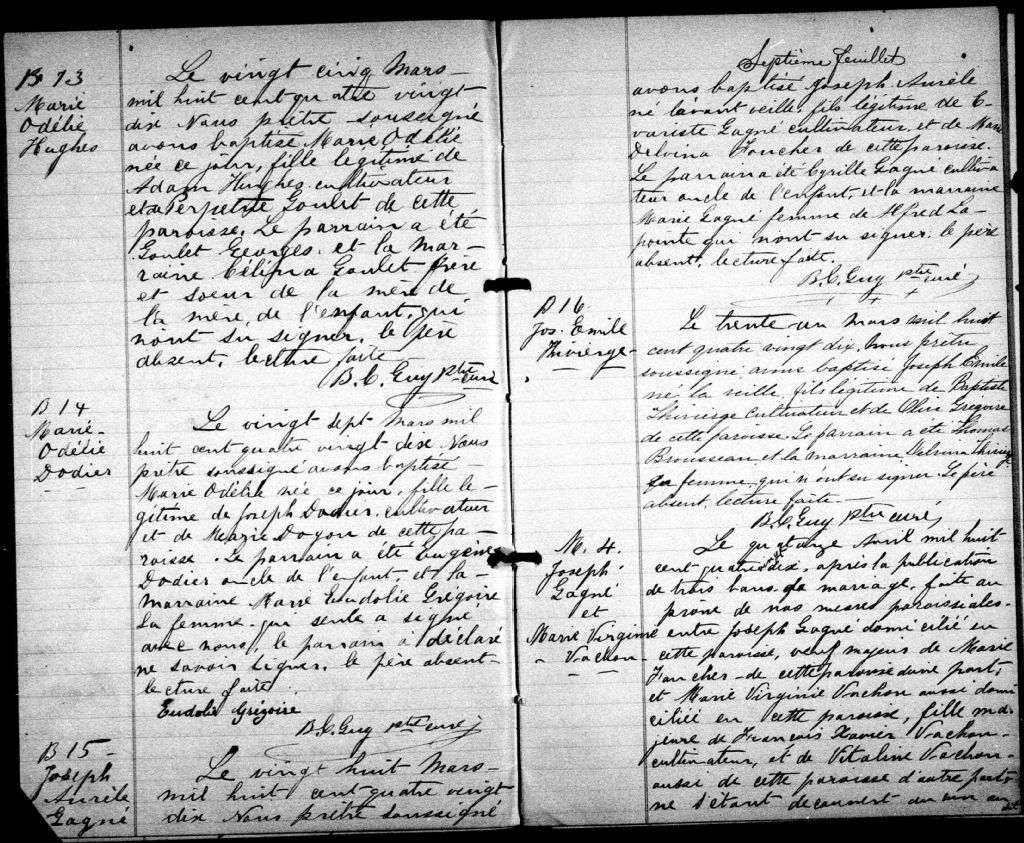 B 13
Marie
Odélie
Hughes
Le vingt cinq Mars
mil huit cent quatre vingt
dix Nous prêtre soussigné
avons baptisé Marie Odélie
née ce jour, fille légitime de
Adam Hughes cultivateur
et de Perpétue Goulet de cette
paroisse. Le parrain a été
Goulet Georges et la mar-
raine Célina Goulet frère
et soeur de la mère de
la mère, de l'enfant, qui
n'ont su signer. le père
absent, lecture faite
B. C. Guy ptre curé
B 14
Marie-
Odélie
Dodier
Le vingt sept Mars mil
huit cent quatre vingt dix Nous
prêtre soussigné avons baptisé
Marie Odélie née ce jour, fille lé-
gitime de Joseph Dodier, cultivateur
et de Marie Doyon de cette pa-
roisse. Le parrain a été Eugène
Dodier oncle de l'enfant, et la
marraine Marie Eudolie Grégoire
sa femme qui seule a signé
avec nous, le parrain a déclaré
ne savoir signer. le père absent-
lecture faite.
Eudolie Grégoire
B. C. Guy ptre curé
B 15
Joseph
Aurèle
Gagné
Le vingt huit Mars
mil huit cent quatre vingt
dix Nous prêtre soussigné
Septième feuillet
avons baptisé Joseph Aurèle
né l'avant veille, fils légitime de E-
variste Gagné cultivateur, et de Marie
Delvina Foucher de cette paroisse.
Le parrain a été Cyrille Gagné cultiva
teur oncle de l'enfant, et la marraine
Marie Gagné femme de Alfred La-
pointe qui n'ont su signer. le père
absent. lecture faite.
B. C. Guy ptre curé
B 16
Jos. Emile
Thivierge
Le trente un Mars mil huit
cent quatre vingt dix, nous prêtre
soussigné avons baptisé Joseph Emile
né la veille, fils légitime de Baptiste
Thivierge cultivateur et de Olive Grégoire
de cette paroisse. Le parrain a été Thomas
Brousseau et la marraine Thivierge
sa femme, qui n'ont su signer. Le père
absent, lecture faite
B. C. Guy Ptre curé
M. 4.
Joseph
Gagné
et
Marie Virginie
Vachon
Le quatorze Avril mil huit
cent quatre vingt dix, après la publication
de trois bans de mariage, faite au
prône de nos messes paroissiales
entre Joseph Gagné domicilié en
cette paroisse, veuf majeur de Marie
Faucher de cette paroisse d'une part,
et Marie Virginie Vachon aussi domi
ciliée en cette paroisse, fille ma-
jeure de François Xavier Vachon
cultivateur, et de Vitaline Vachon
aussi de cette paroisse d'autre part,
ne s'étant découvert aucun em